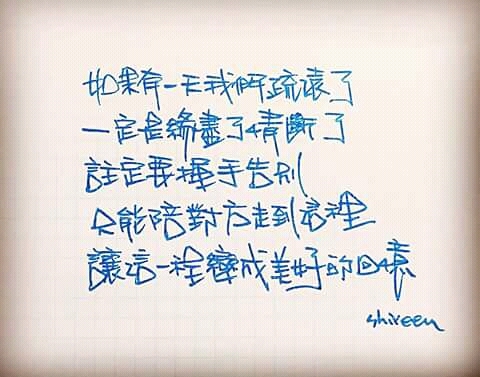 如果有一天我們疏遠了
一定是緣盡了情斷了
註定要揮手告別
只能陪對方走到這裡
讓這一程變成美好的回憶
shireen